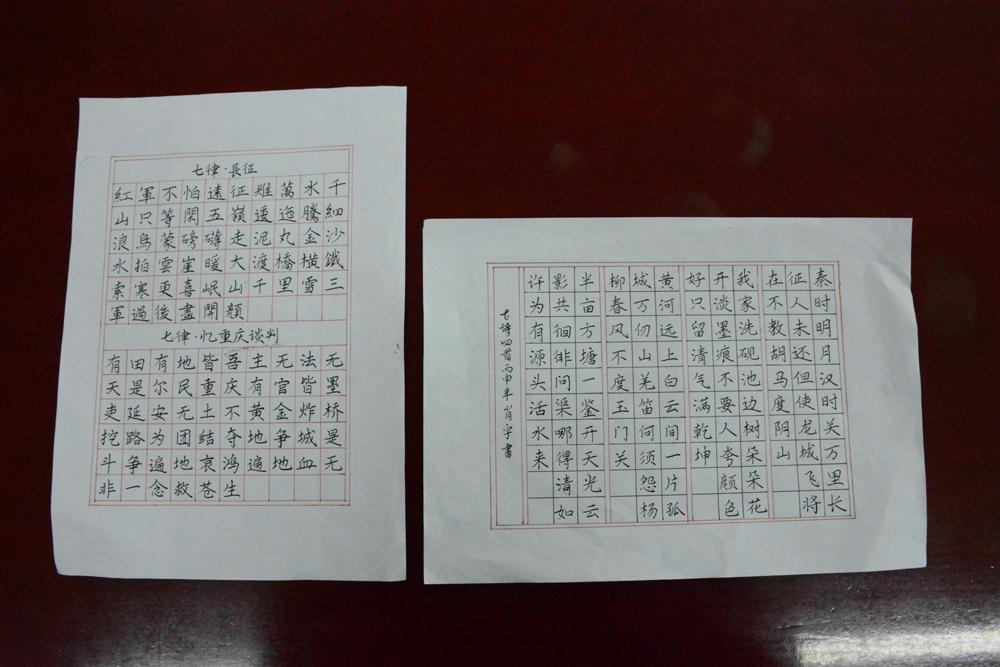 七律·長征
紅軍不怕遠征難萬水千
山只等閑五嶺逶迤騰細
浪烏蒙磅礴走泥丸金沙
水拍雲崖暖大渡橋橫鐵
索寒更喜岷山千里雪三
軍過後盡開顏
七律·忆重庆谈判
有田有地皆吾主无法无
天是尔民重庆有官皆墨
吏延安无土不黄金炸桥
挖路为团结夺地争城是
斗争遍地哀鸿遍地血无
非一念救苍生
秦时明月汉时关万里长
征人未还但使龙城飞将
在不教胡马度阴山
我家洗砚池边树朵朵花
开淡墨痕不要人夸颜色
好只留清气满乾坤
黄河远上白云间一片孤
城万仞山羌笛何须怨杨
柳春风不度玉门关
半亩方塘一鉴开天光云
影共徊徘问渠哪得清如
许为有源头活水来
古诗四首丙申年肖宇書